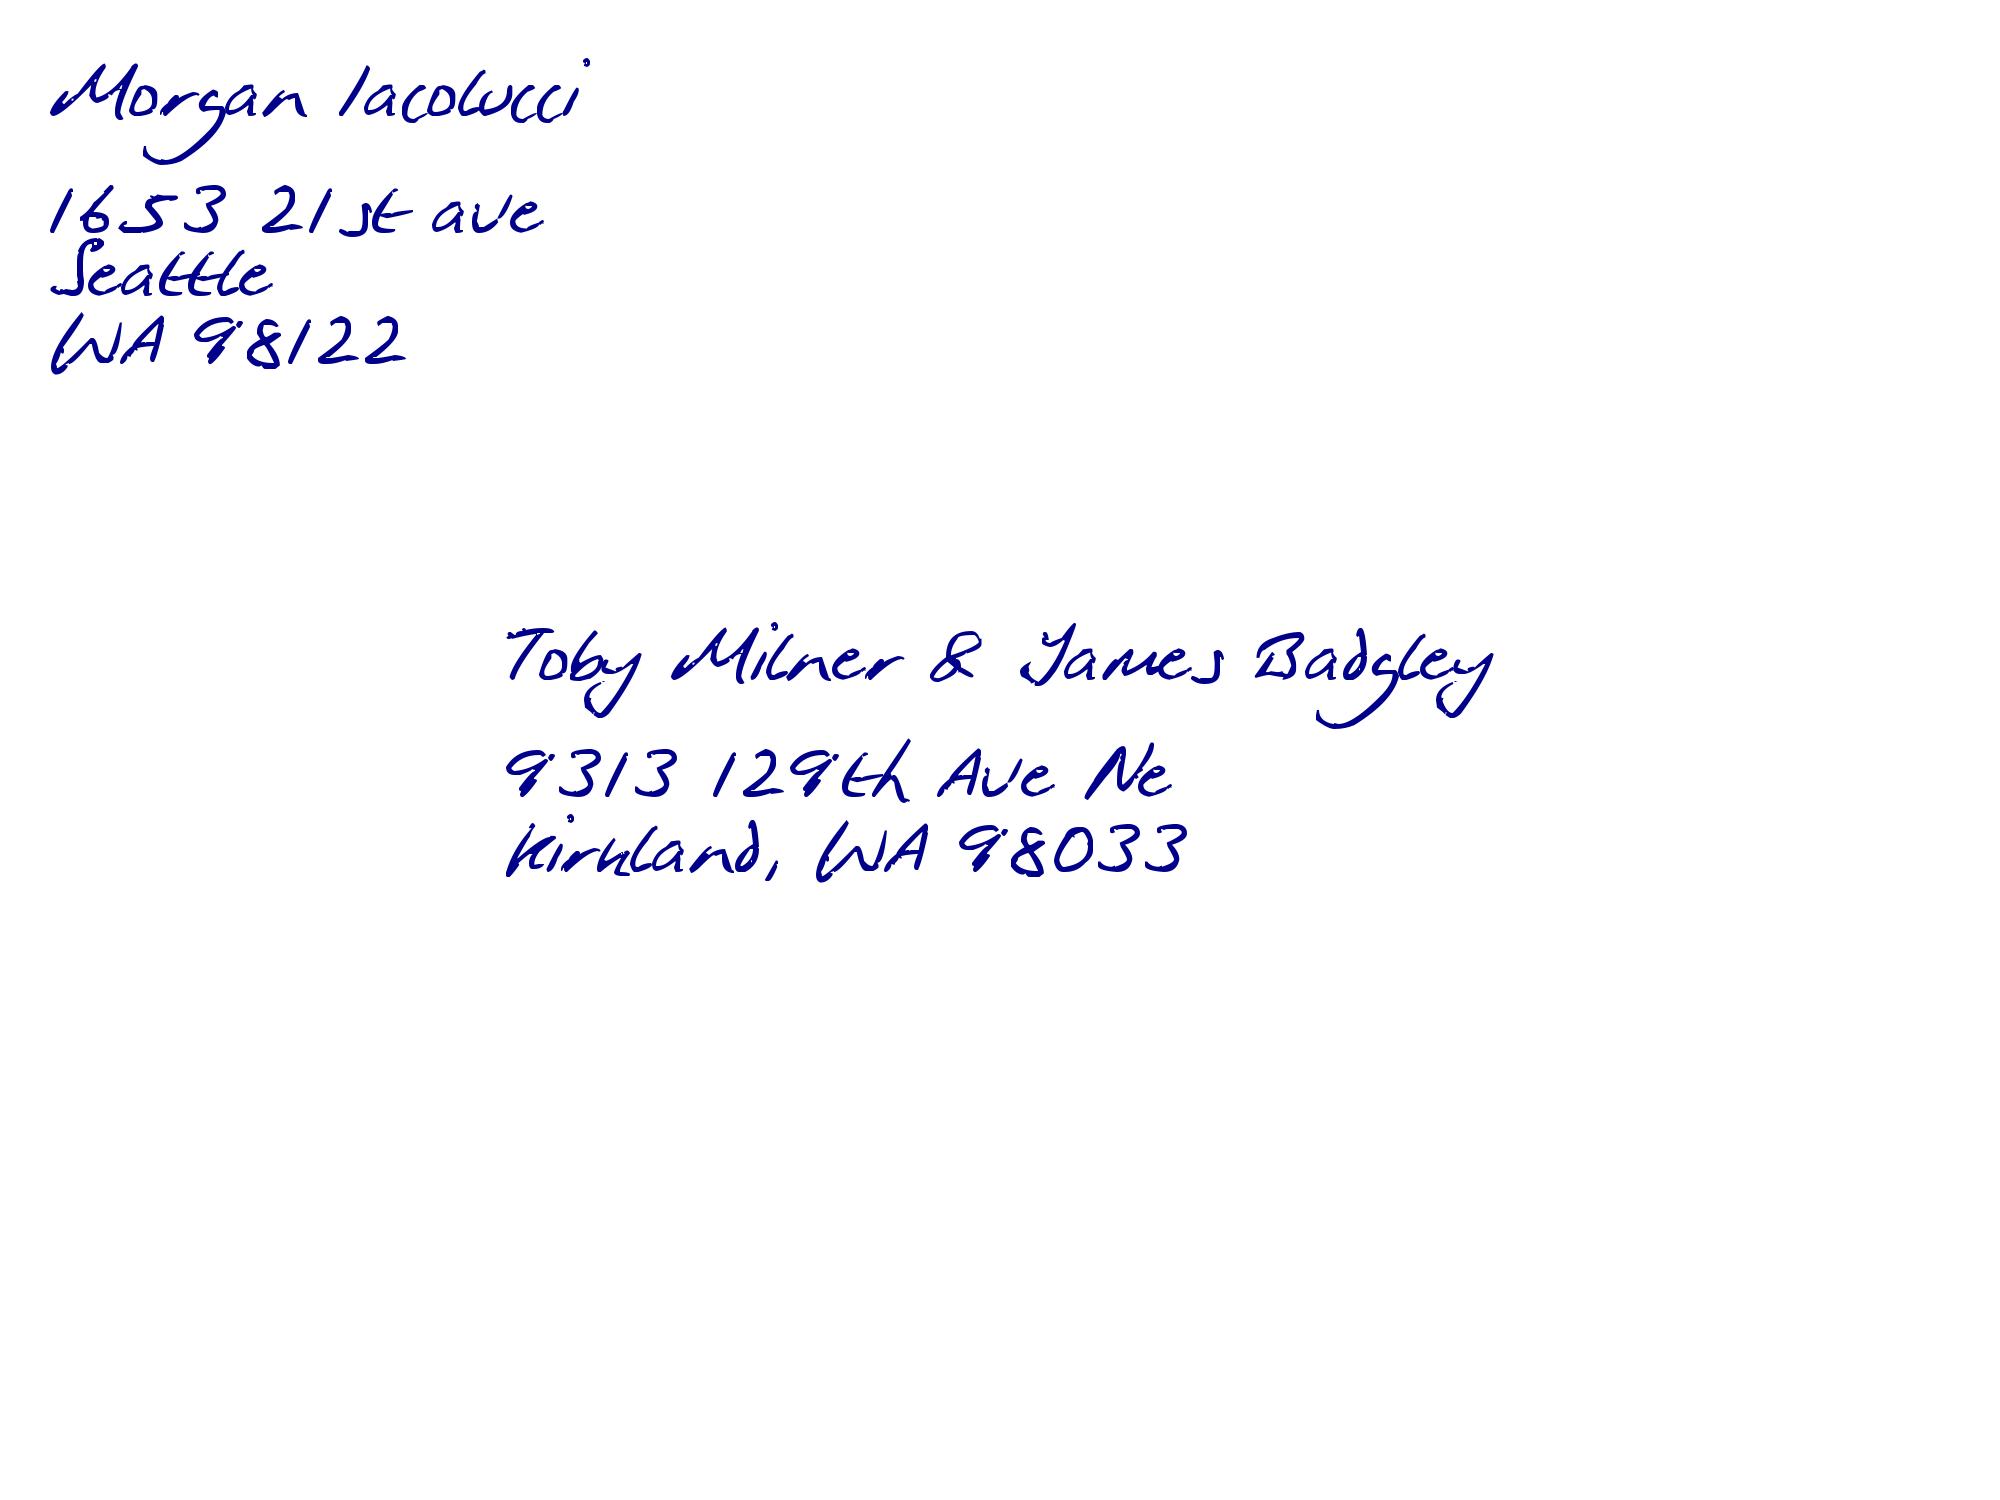 Morgan Iacolucci
1653 21st ave
Seattle
WA 98122
Toby Milner & James Badgley
9313 129th Ave Ne
Kirkland, WA 98033